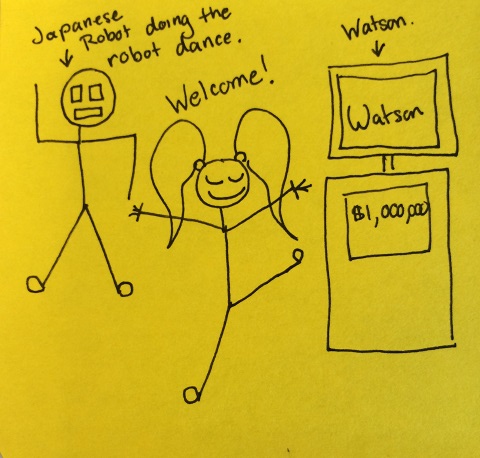 Japanese
Robot doing the
robot dance.
Welcome!
Watson.
Watson
$1,000,000